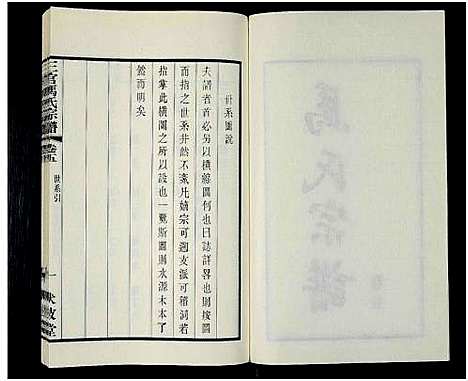 馬氏宗譜
世系圖說
夫譜者首必另以橫縱圖何也曰誌詳畧也則按圖
而指之世系井然不紊凡嫡宗可遡支派可稽洞若
指掌此橫圖之所以設也一覽斯圖則水源木本了
然而明矣
三管馮氏宗譜
卷五
世系引
一
伏波堂